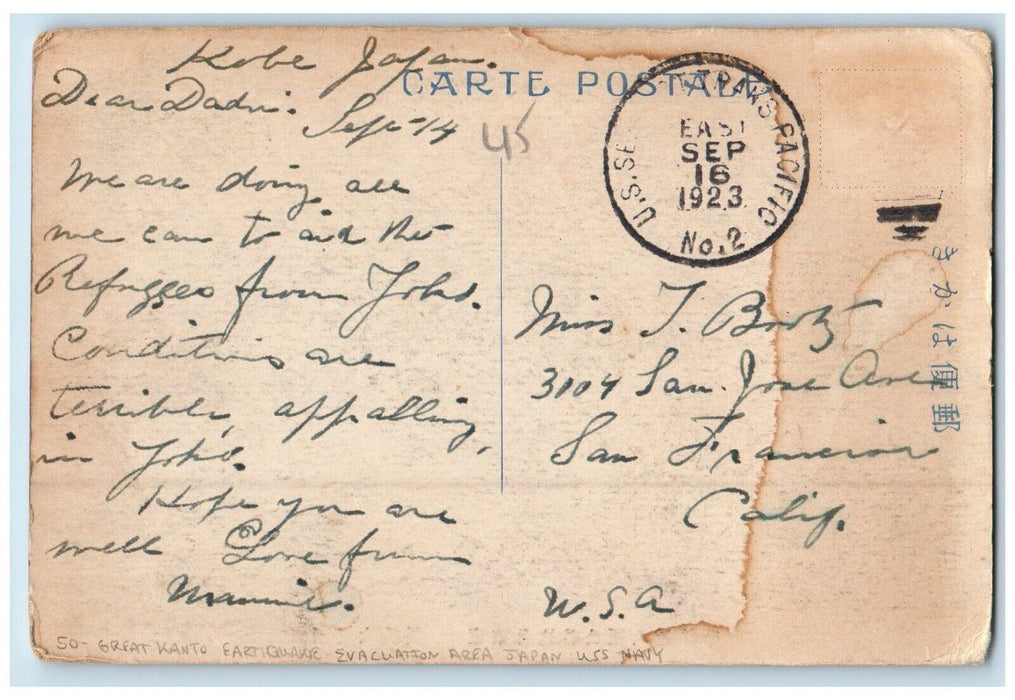 Kobe Japan.
Dear Dadri.
Sept 14
We are doing all
we can to aid the
Refugees from Yoko.
Conditions are
terrible, appalling,
in Yoko.
Hope you are
well Love from
Mamie.
CARTE POSTALE
45
U.S. SE TRANS-PACIFIC
EAST
SEP
16
1923
No. 2
きかは便郵
Miss T.
3104 San Jose Ave
San Francisco
Calif.
U.S.A
50- GREAT KANTO EARTHQUAKE EVACUATION AREA JAPAN USS NAVY